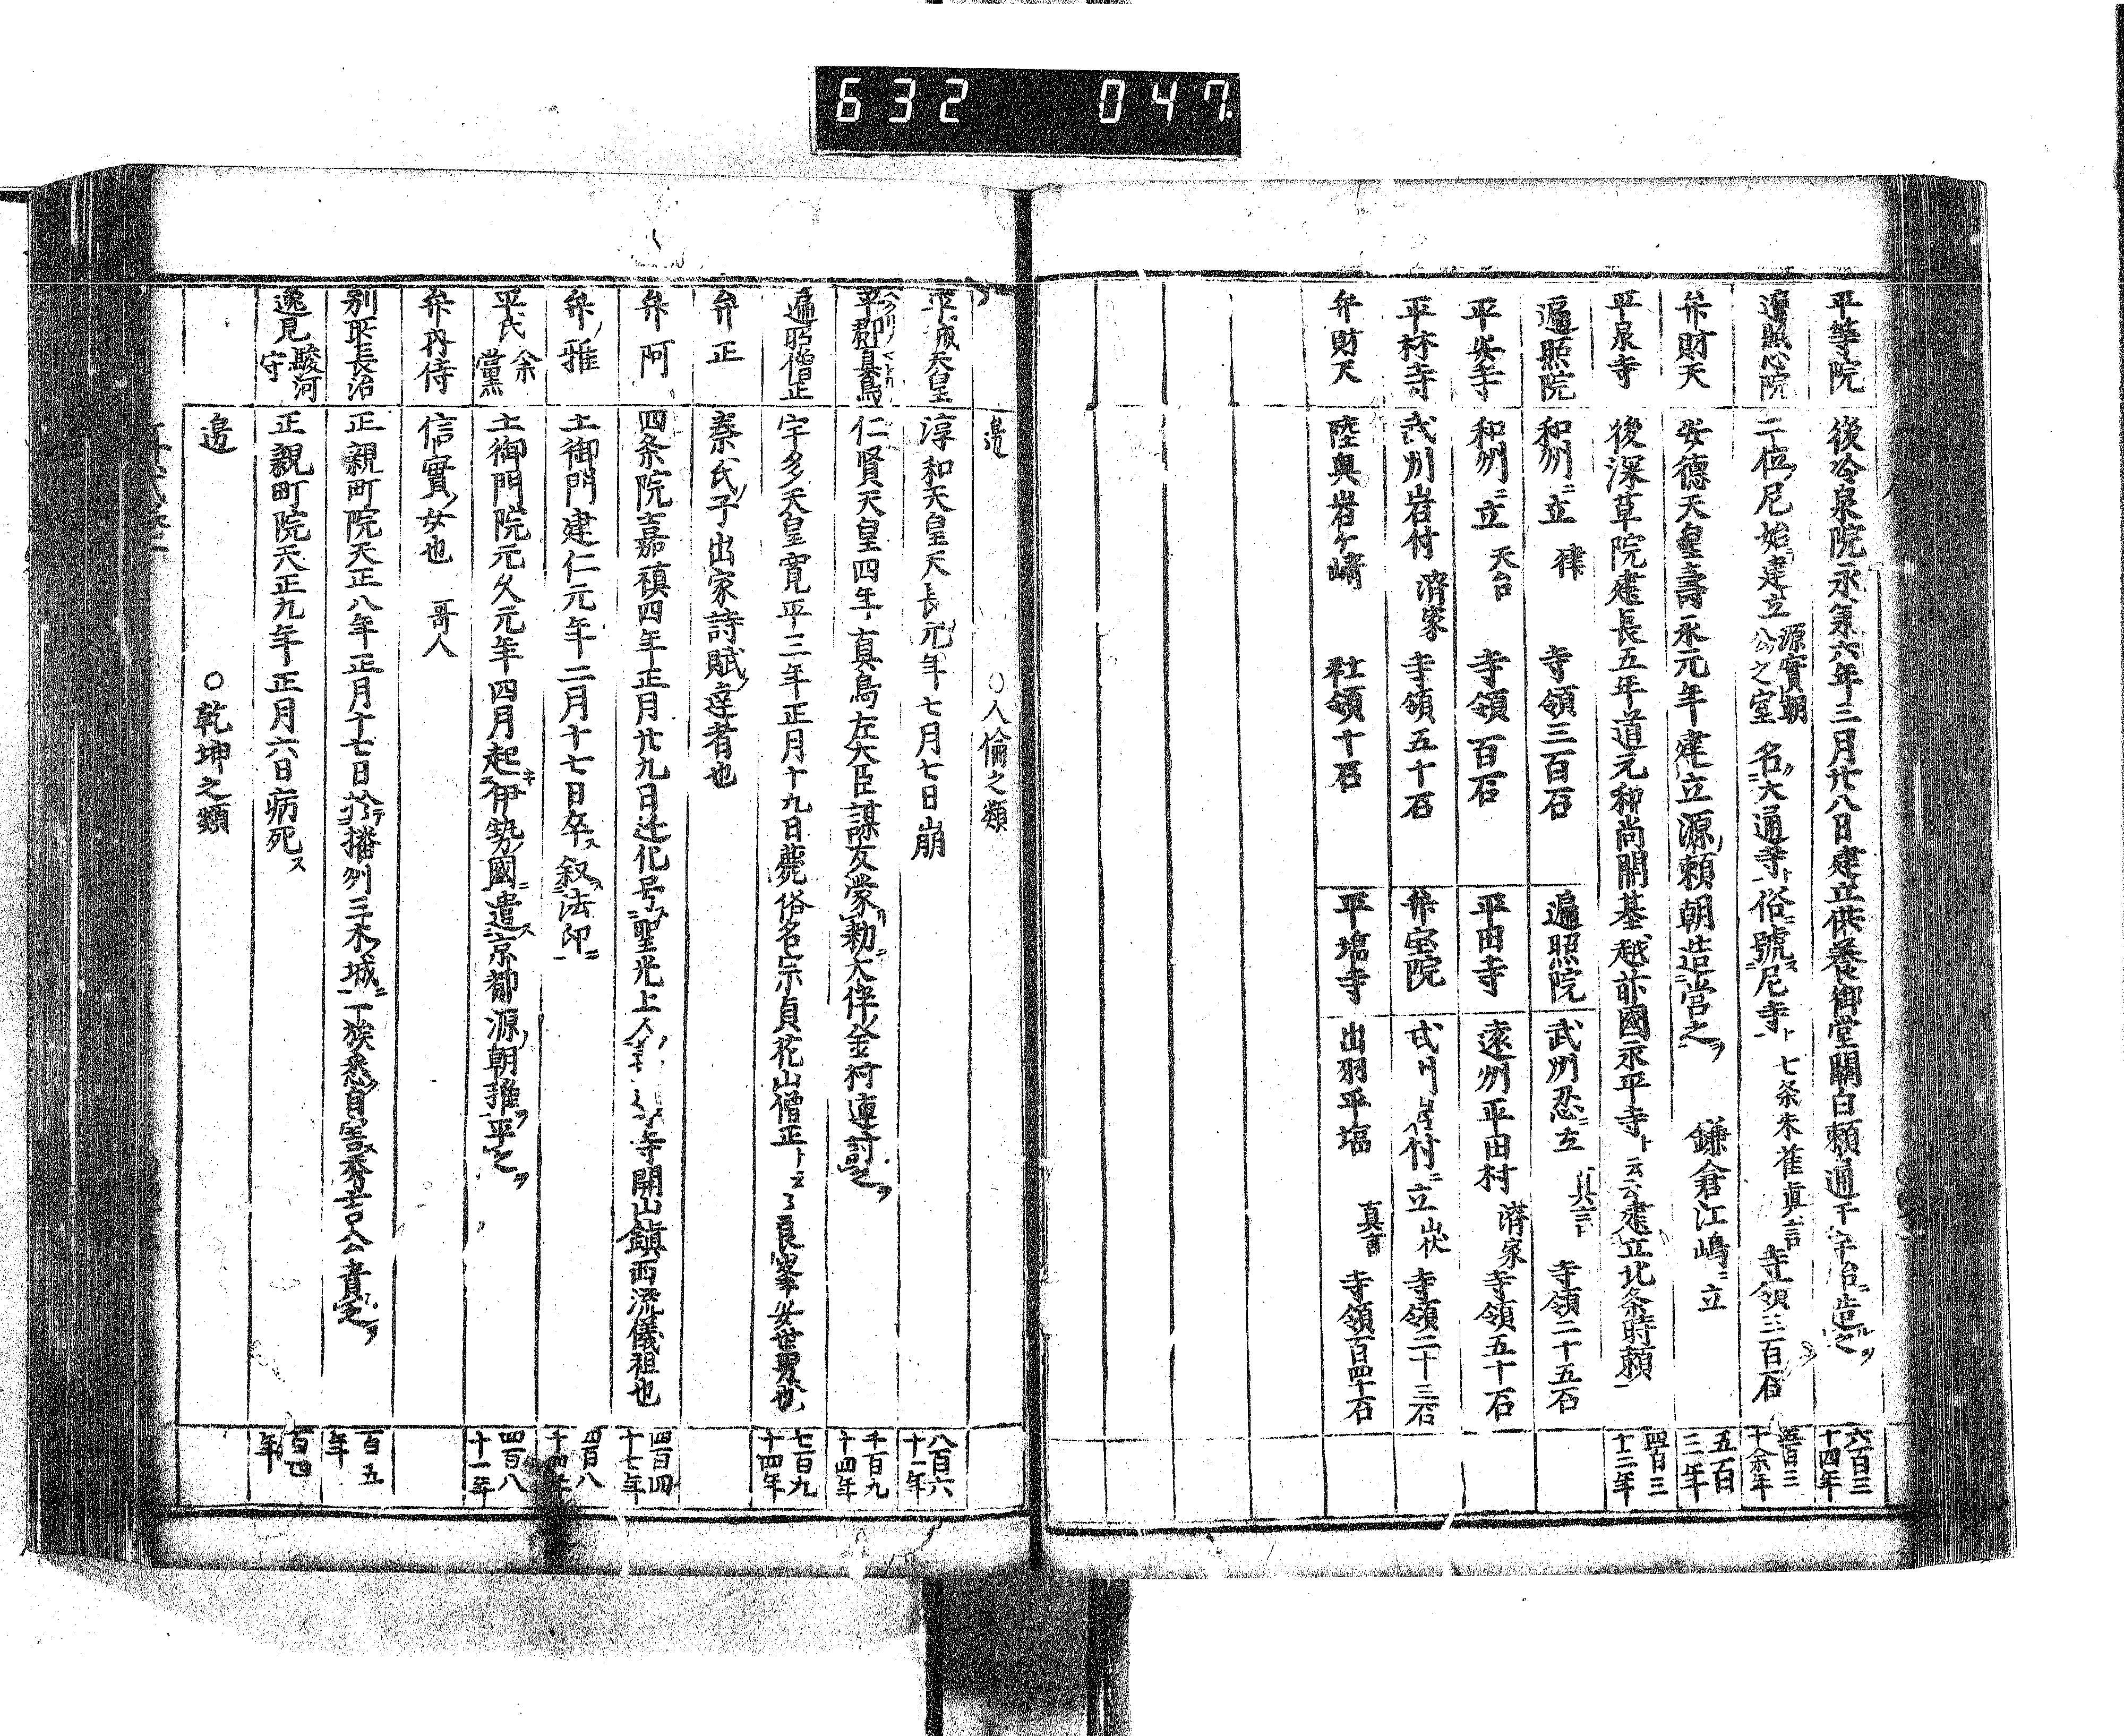 632 047.
平等院 後冷泉院永兼六年三月廿八日建立供養御堂關白賴通于宇治ニ造ル之ヲ 六百三十四年
遍照心院 二位ノ尼始建立 源實朝公之室 名ク大通寺ト俗ニ號ス尼寺ト 七条朱雀真言 寺領三百石 四百三十余年
弁財天 安德天皇壽永元年建立源ノ賴朝造營之ヲ 鎌倉江嶋ニ立 五百三年
平泉寺 後深草院建長五年道元和尚開基越前國永平寺ト云云建立北条時賴 四百三十二年
遍照院 和州ニ立 律 寺領三百石 遍照院 武州忍ニ立 真言 寺領二十五石
平安寺 和州ニ立 天台 寺領百石 平田寺 遠州平田村 濟家 寺領五十石
平林寺 武州岩付 濟家 寺領五十石 弁宝院 武州岩付ニ立 山伏 寺領二十三石
弁財天 陸奥岩ケ﨑 社領十石 平塩寺 出羽平塩 真言 寺領百四十石
邊 ○人倫之類
平城天皇 淳和天皇天長元年七月七日崩 八百六十一年
平郡真鳥 仁賢天皇四年真鳥左大臣謀反蒙勅大伴金村連討之ヲ 千百九十四年
遍昭僧正 宇多天皇寛平三年正月十九日薨俗名宗貞花山僧正ト云 良峯安世男也 七百九十四年
弁正 秦氏ノ子出家詩賦ノ達者也
弁阿 四条院嘉禎四年正月廿九日迁化号聖光上人 寺開山鎮西流儀祖也 四百四十七年
弁雅 土御門建仁元年二月十七日卒ス叙法印ニ 四百八十四年
平氏余黨 土御門院元久元年四月起伊勢國ニ遣ス京都源ノ朝雅ヲ平之ヲ 四百八十一年
弁内侍 信實ノ女也 哥人
別所長治 正親町院天正八年正月十七日於テ播州三木ノ城ニ一族悉自害秀吉公責之ヲ 百五年
逸見駿河守 正親町院天正九年正月六日病死ス 百四年
邊 ○乾坤之類